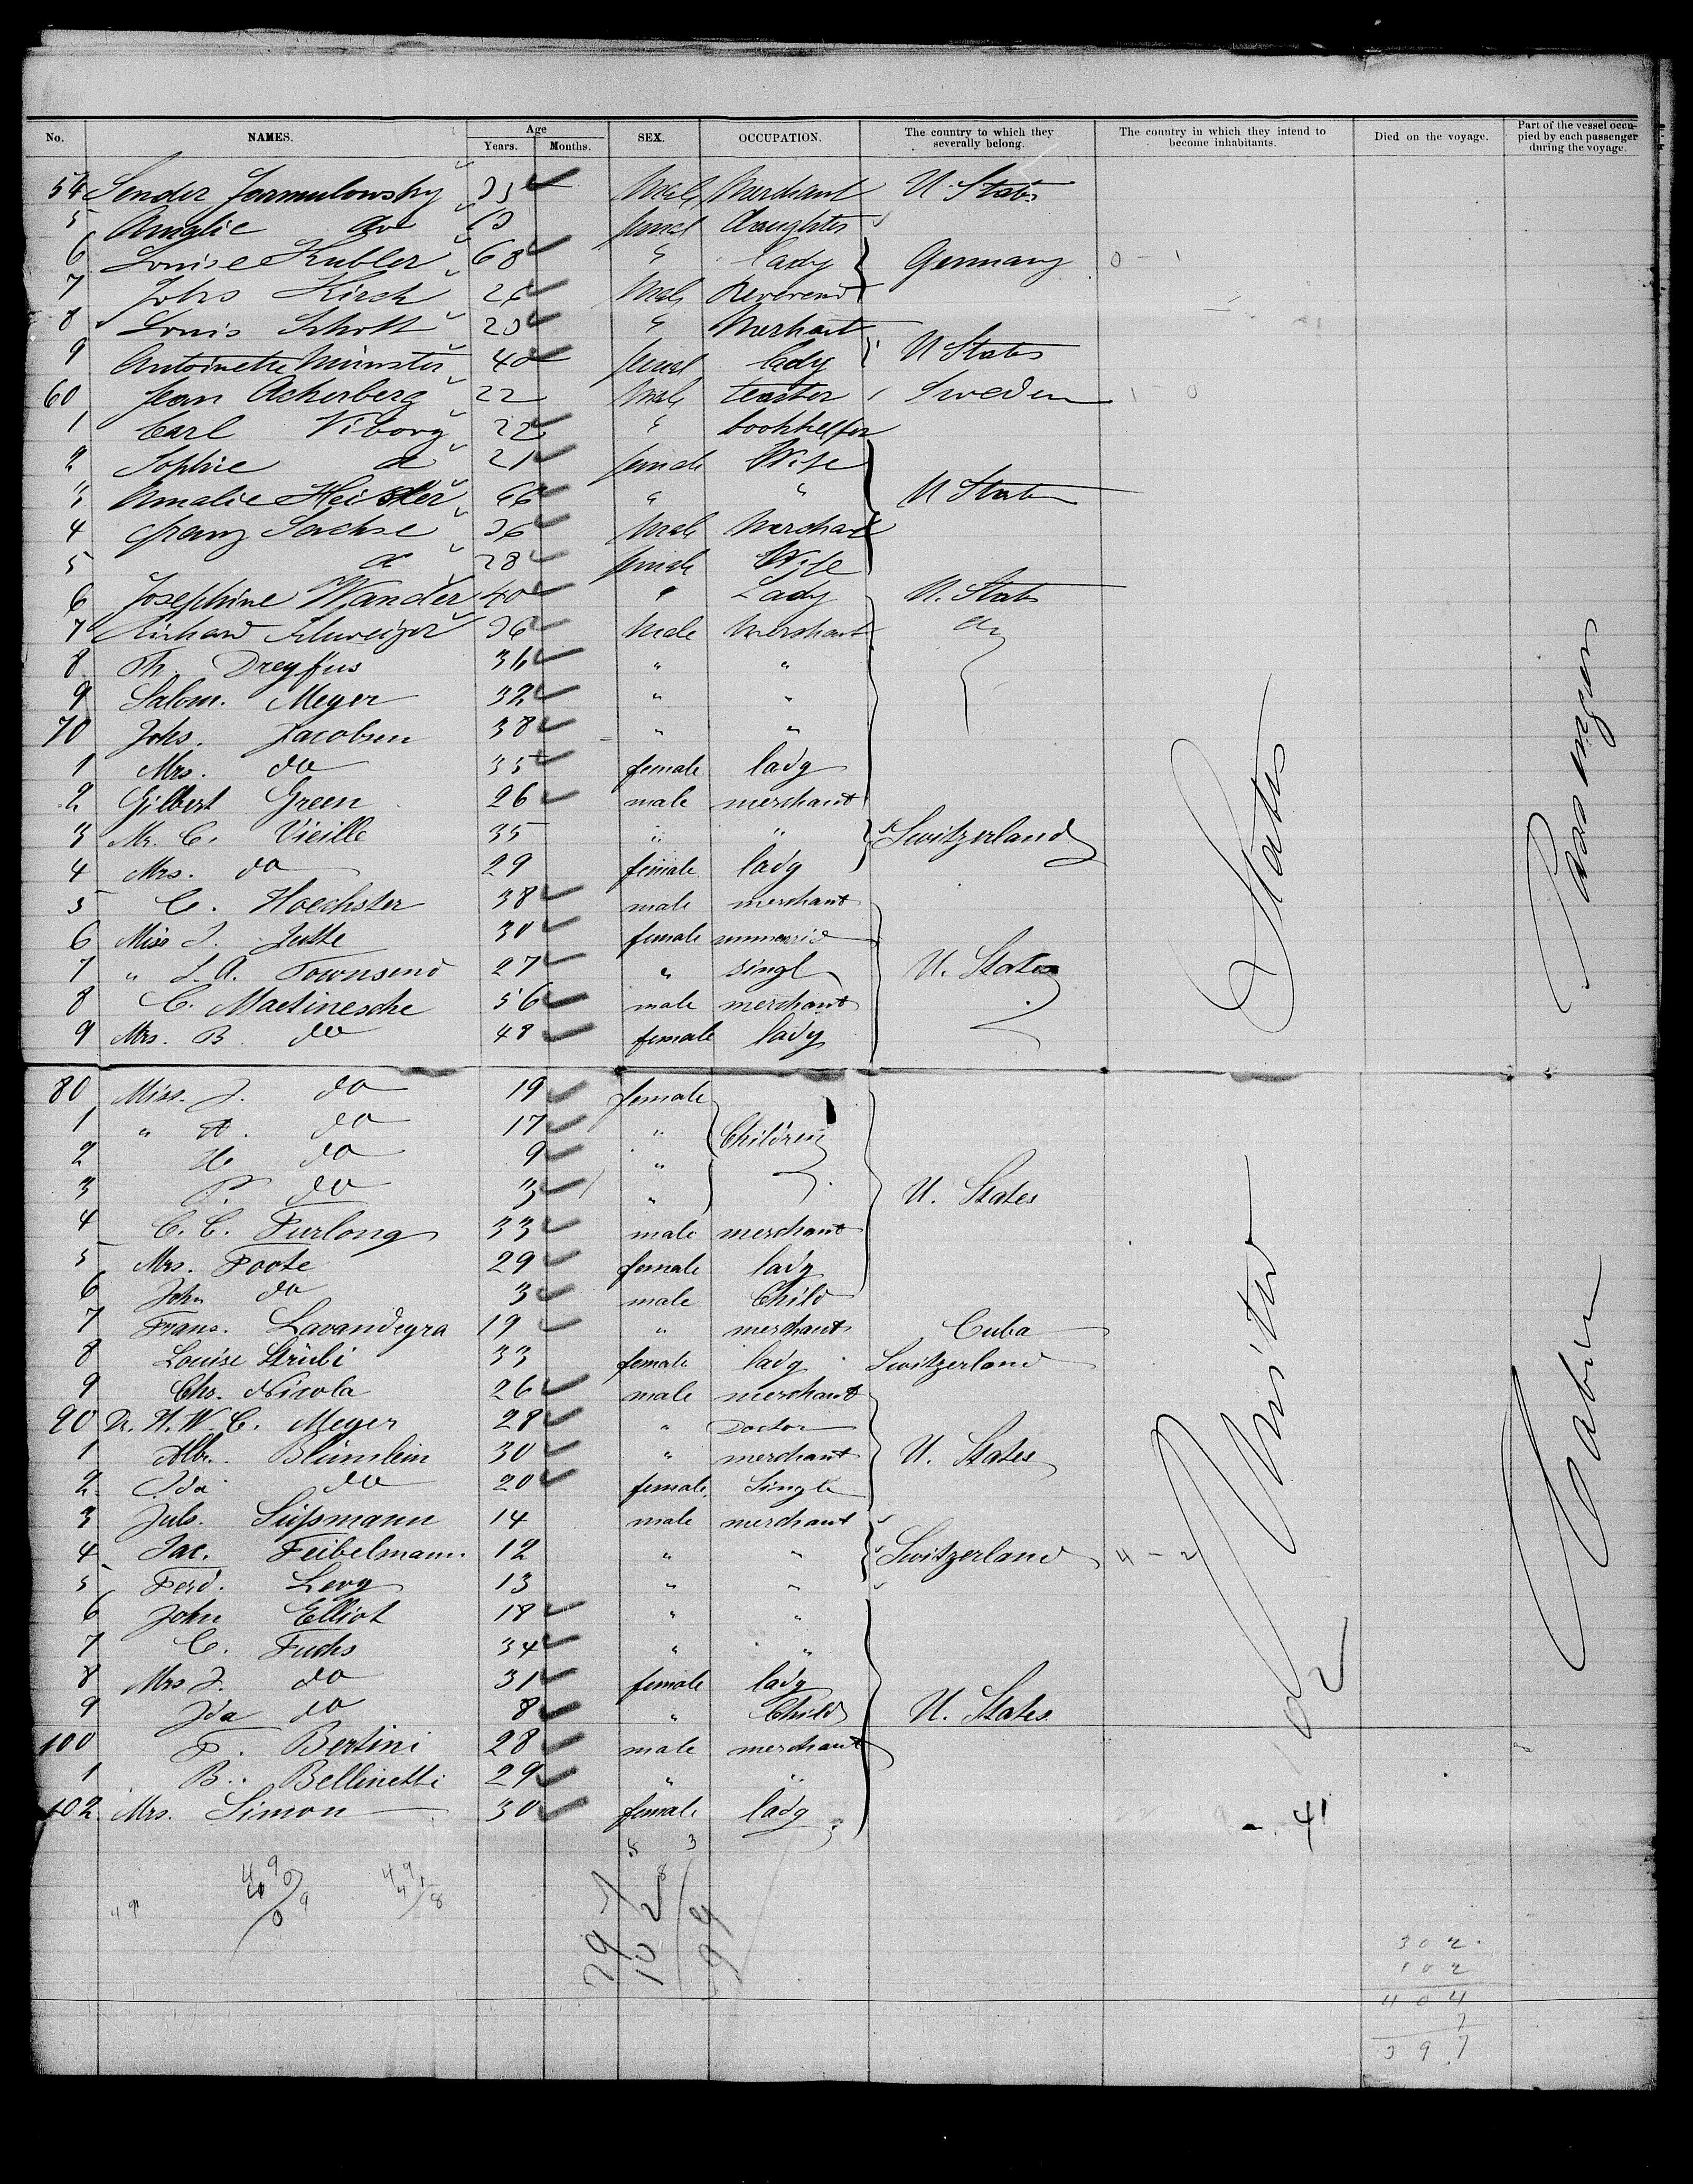 No. NAMES. Age Years. Months. SEX. OCCUPATION. The country to which they severally belong. The country in which they intend to become inhabitants. Died on the voyage. Part of the vessel occupied by each passenger during the voyage.
54 Sender Jarmulowsky Male Merchant U. States
5 Amalie do daughter
6 Louise Kubler 68 " lady Germany 0 - 1
7 Johs Kirch 26 Male Reverend
8 Louis Schott " Merhant
9 Antoinette Münster 40 lady U States
60 Jean Ackerberg 22 Male Sweden 1 - 0
1 Carl Viborg 22 "
2 Sophie d 21 female Wife
3 Amalie Heisler 66 " " U States
4 Franz Sachse 36 Male Merchant
5 d 28 female Wife
6 Josephine Wander 40 " Lady U. States
7 Richard Schweizer 36 Male Mershant do
8 Th. Dreyfus 36 " "
9 Salom. Meyer 32 " "
70 Johs. Jacobsen 38 " "
1 Mrs. do 35 female lady
2 Gilbert Green 26 male merchant
3 Mr. C. Vieille 35 " " Switzerland
4 Mrs. do 29 female lady
5 C. Hoechster 38 male merchant
6 Miss J. Jutte 30 female
7 " L. A. Townsend 27 " singl U. States
8 C. Mactinesche 56 male merchant
9 Mrs. B. do 48 female lady
80 Miss. J. do 19 female
1 " A. do 17 " Children
2 H. do 9 "
3 P. do 3 " U. States
4 C. C. Furlong 33 male merchant
5 Mrs. Foote 29 female lady
6 John do 3 male Child
7 Frans. Lavandeyra 19 " merchant Cuba
8 Louise Strübi 33 female lady Switzerland
9 Chs. Nicola 26 male merchant
90 Dr. H. W. C. Meyer 28 " Doctor
1 Alb. Blümlein 30 " merchant U. States
2 Ida do 20 female Single
3 Juls. Süssmann 14 male merchant
4 Jac. Feibelmann. 12 " " Switzerland 4 - 2
5 Ferd. Levy 13 " "
6 John Elliot 18 " "
7 C. Fuchs 34 " "
8 Mrs J. do 31 female lady
9 Ida do 8 " Child U. States.
100 F. Bertini 28 male merchant
1 B. Bellinetti 29 " "
102 Mrs. Simon 30 female lady
United States
Cabin Passengers
41
302
102
404
7
397